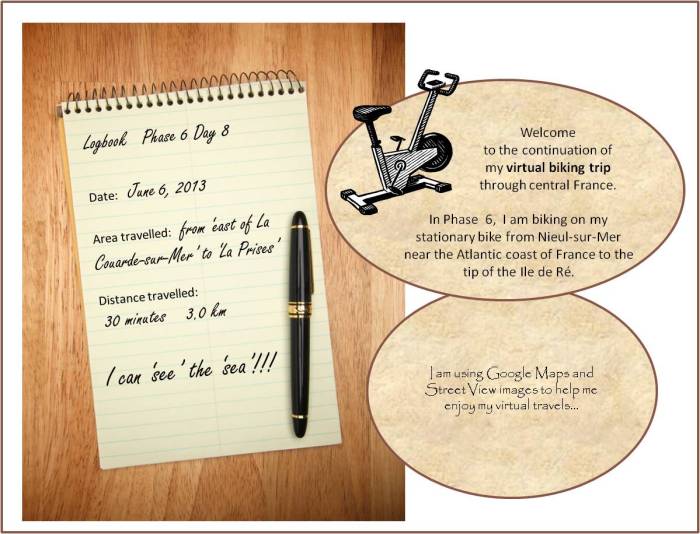 Logbook Phase 6 Day 8
Date: June 6, 2013
Area travelled: from 'east of La
Couarde-sur-Mer' to 'La Prises'
Distance travelled:
30 minutes 3.0 km
I can 'see' the 'sea'!!!
Welcome
to the continuation of
my virtual biking trip
through central France.
In Phase 6, I am biking on my
stationary bike from Nieul-sur-Mer
near the Atlantic coast of France to the
tip of the Ile de Ré.
I am using Google Maps and
Street View images to help me
enjoy my virtual travels...